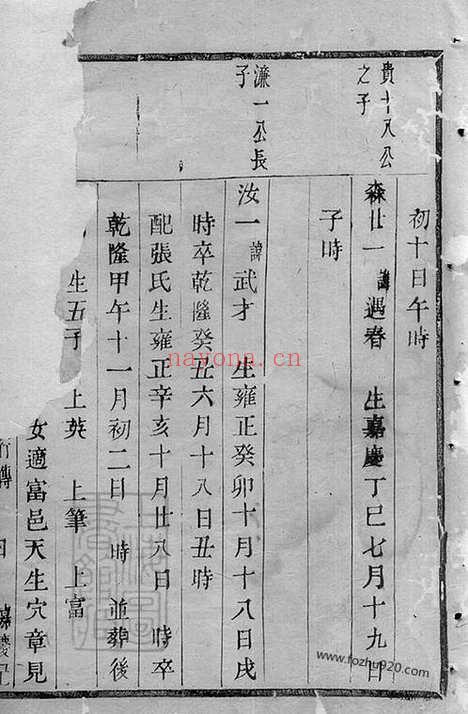 初十日午時
貴十八公
之子
森廿一 諱遇春 生嘉慶丁巳七月十九日
子時
濂一公長
子
汝一 諱武才 生雍正癸卯十月十八日戌
時卒乾隆癸丑六月十八日丑時
配張氏生雍正辛亥十月廿八日 時卒
乾隆甲午十一月初二日 時並葬後
生五子 上英 上筆 上富
女適富邑天生穴章見
行傳
nayona.cn
www.fozhu920.com